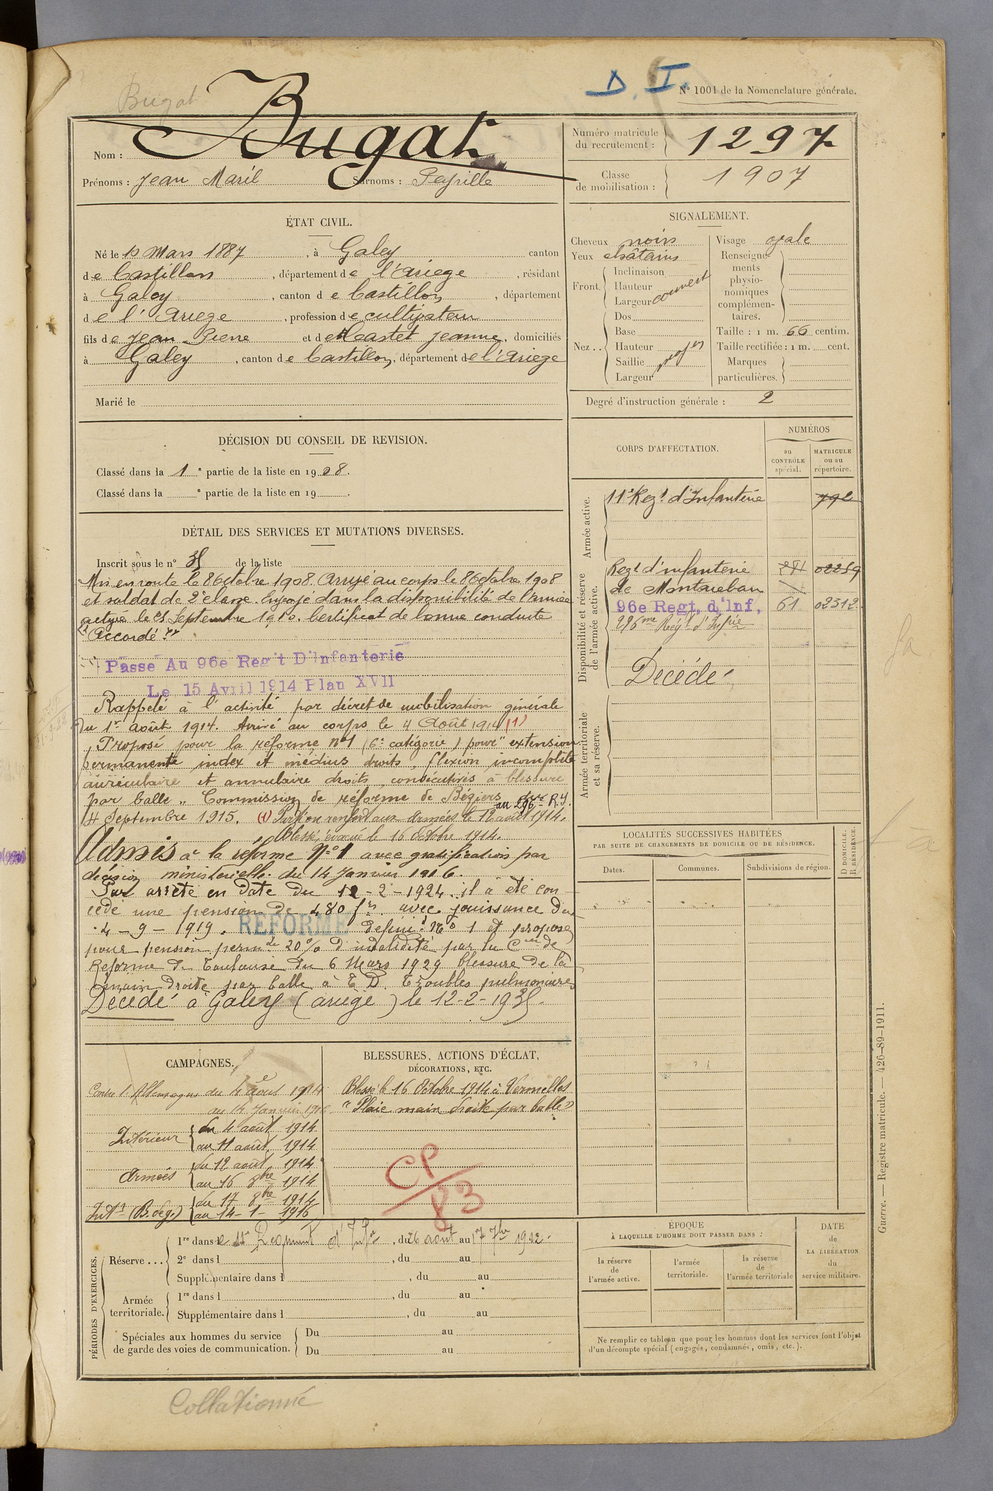 Bugat
D. I.
N° 1001 de la Nomenclature générale.
Nom : Bugat
Prénoms : Jean Maril Surnoms : Peyrille
Numéro matricule du recrutement : 1297
Classe de mobilisation : 1907
ÉTAT CIVIL.
Né le 10 Mars 1887, à Galey canton
de Castillon, département de l'Ariège, résidant
à Galey, canton de Castillon, département
de l'Ariège, profession de cultivateur
fils de Jean Pierre et de Castet Jeanne, domiciliés
à Galey, canton de Castillon, département de l'Ariège
Marié le
SIGNALEMENT.
Cheveux noirs
Yeux châtains
Front. Inclinaison
Hauteur
Largeur couvert
Nez .. Dos
Base
Hauteur
Saillie
Largeur
Visage ovale
Renseignements physionomiques complémentaires.
Taille : 1 m. 66 centim.
Taille rectifiée : 1 m. cent.
Marques particulières.
Degré d'instruction générale : 2
DÉCISION DU CONSEIL DE REVISION.
Classé dans la 1e partie de la liste en 1908.
Classé dans la e partie de la liste en 19
CORPS D'AFFECTATION.
NUMÉROS
au CONTRÔLE spécial.
MATRICULE ou au répertoire.
Armée active.
11e Regt d'Infanterie 792
Disponibilité et réserve de l'armée active.
Regt d'infanterie de Montauban
96e Regt. d'Inf. 61 02312
296me Régt d'Infrie
Décédé
Armée territoriale et sa réserve.
DÉTAIL DES SERVICES ET MUTATIONS DIVERSES.
Inscrit sous le n° 38 de la liste
Mis en route le 8 Octobre 1908. Arrivé au corps le 8 Octobre 1908
et soldat de 2e classe. Envoyé dans la disponibilité de l'armée
active le 25 Septembre 1910. Certificat de bonne conduite
"Accordé"
Passé Au 96e Régt D'Infanterie
Le 15 Avril 1914 Plan XVII
Rappelé à l'activité par décret de mobilisation générale
du 1er août 1914. Arrivé au corps le 4 Août 1914 (1)
Proposé pour la réforme n°1 (6e catégorie) pour "extension
permanente index et médius droits, flexion incomplète
auriculaire et annulaire droits, consécutives à blessure
par balle". Commission de réforme de Béziers du
4 Septembre 1915. (1) Parti en renfort aux armées le 12 août 1914.
au 296e R.I.
Blessé, évacué le 16 Octobre 1914.
Admis à la réforme N°1 avec gratification par
décision ministérielle du 14 Janvier 1916.
Par arrêté en date du 12-2-1924 il a été con-
cédé une pension de 480 frs avec jouissance du
4-9-1919.
RÉFORME
définive N° 1 et proposé
pour pension permte 20% d'invalidité par la Con de
Réforme de Toulouse du 6 Mars 1929 blessure de la
main droite par balle à E.D. Troubles pulmonaires
Décédé à Galey (ariège) le 12-2-1935.
LOCALITÉS SUCCESSIVES HABITÉES
PAR SUITE DE CHANGEMENTS DE DOMICILE OU DE RÉSIDENCE.
Dates.
Communes.
Subdivisions de région.
D DOMICILE. R RÉSIDENCE.
CAMPAGNES.
Contre l'Allemagne du 4 août 1914
au 14 Janvier 1916
Intérieur du 4 août 1914
au 11 août 1914
Armées du 12 août 1914
au 16 8bre 1914
Intr (B. deg.) du 17 8bre 1914
au 14-1-1916
BLESSURES, ACTIONS D'ÉCLAT,
DÉCORATIONS, ETC.
Blessé le 16 Octobre 1914 à Vermelles
"Plaie main droite par balle"
CP/83
PÉRIODES D'EXERCICES.
Réserve ... 1re dans le Régiment d'Infie, du 26 août au 17 7bre 1912
2e dans l, du au
Supplémentaire dans l, du au
Armée territoriale. 1re dans l, du au
Supplémentaire dans l, du au
Spéciales aux hommes du service de garde des voies de communication. Du au
Du au
ÉPOQUE
À LAQUELLE L'HOMME DOIT PASSER DANS :
la réserve de l'armée active.
l'armée territoriale.
la réserve de l'armée territoriale
DATE de LA LIBÉRATION du service militaire.
Ne remplir ce tableau que pour les hommes dont les services font l'objet
d'un décompte spécial (engagés, condamnés, omis, etc.).
Guerre. — Registre matricule. — 426-89-1911.
Collationné